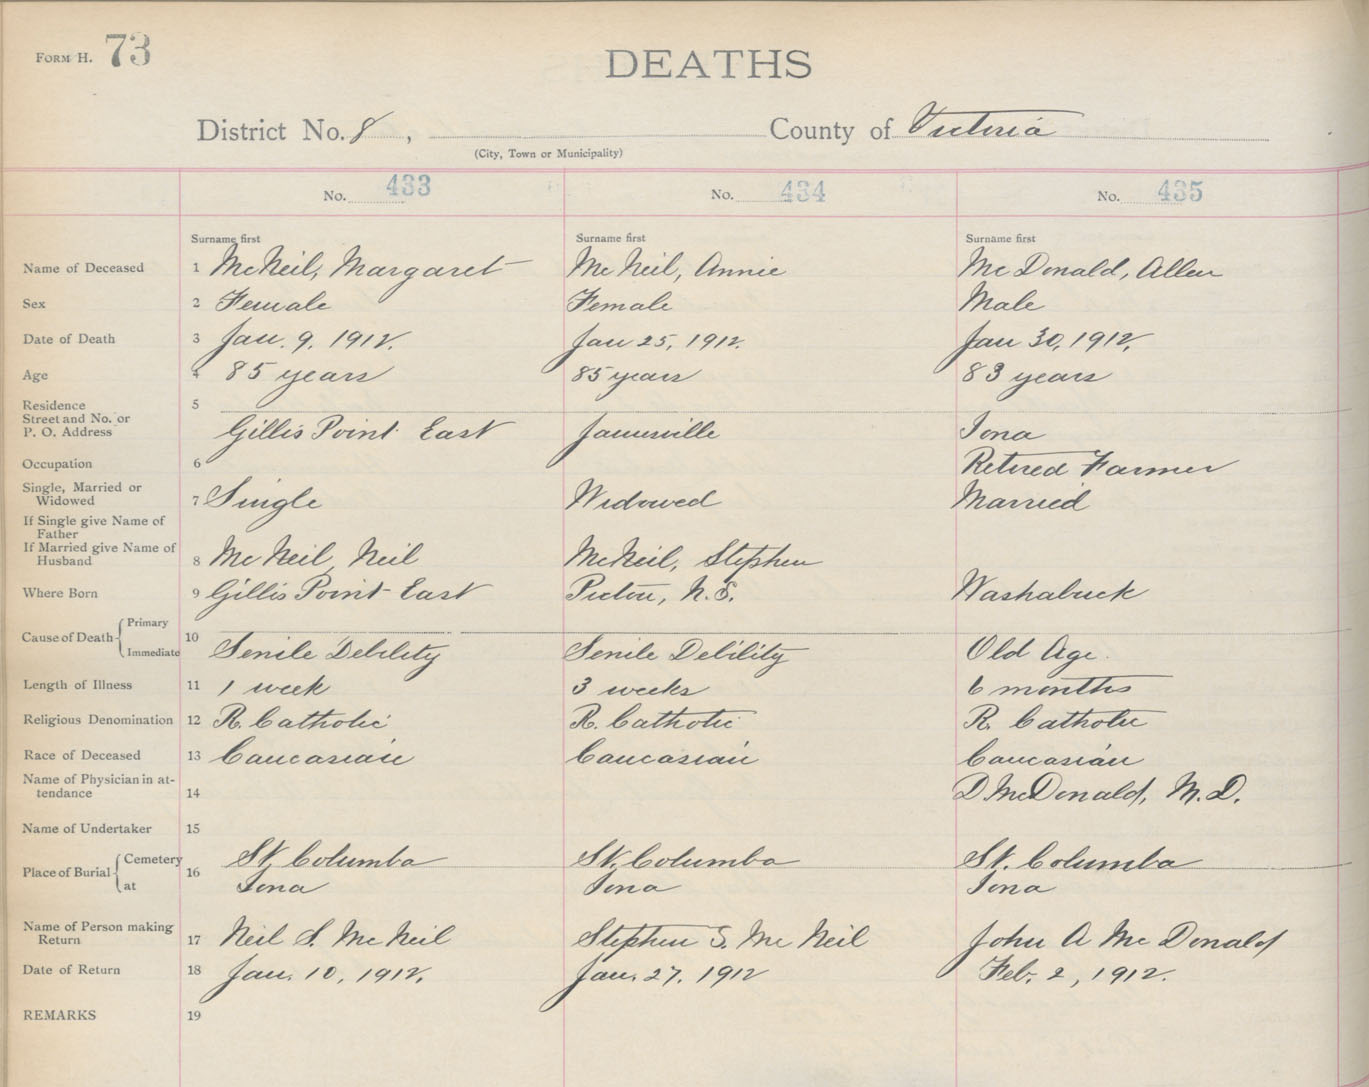 FORM H. 73
DEATHS
District No. 8, County of Victoria
(City, Town or Municipality)
No. 433 No. 434 No. 435
Surname first Surname first Surname first
Name of Deceased 1 McNeil, Margaret McNeil, Annie McDonald, Allen
Sex 2 Female Female Male
Date of Death 3 Jan. 9, 1912. Jan 25, 1912. Jan 30, 1912.
Age 4 85 years 85 years 83 years
Residence 5
Street and No. or
P. O. Address Gillis Point East Jamesville Iona
Occupation 6 Retired Farmer
Single, Married or
Widowed 7 Single Widowed Married
If Single give Name of
Father
If Married give Name of
Husband 8 McNeil, Neil McNeil, Stephen
Where Born 9 Gillis Point East Pictou, N.S. Washabuck
Cause of Death Primary
10
Immediate Senile Debility Senile Debility Old Age.
Length of Illness 11 1 week 3 weeks 6 months
Religious Denomination 12 R. Catholic R. Catholic R. Catholic
Race of Deceased 13 Caucasian Caucasian Caucasian
Name of Physician in at-
tendance 14 D McDonald, M.D.
Name of Undertaker 15
Place of Burial Cemetery 16 St. Columba St. Columba St. Columba
at Iona Iona Iona
Name of Person making
Return 17 Neil S. McNeil Stephen S. McNeil John A McDonald
Date of Return 18 Jan. 10, 1912. Jan. 27, 1912 Feb. 2, 1912.
REMARKS 19